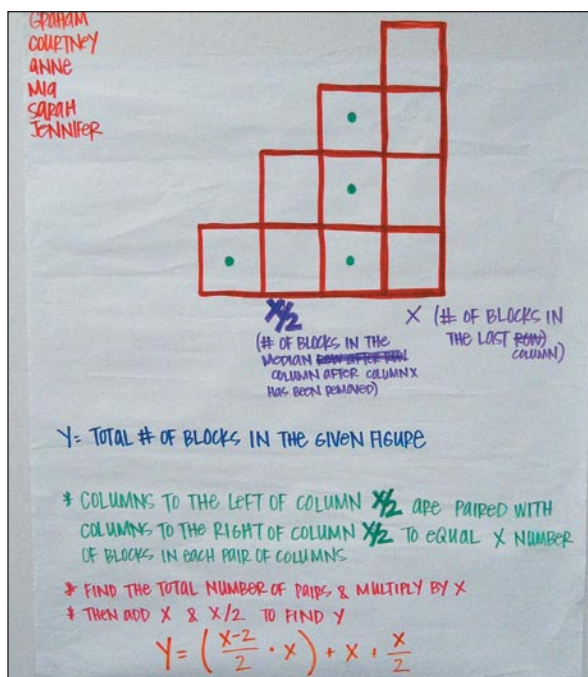 GRAHAM
COURTNEY
ANNE
MIA
SARAH
JENNIFER
X/2
(# OF BLOCKS IN THE
MEDIAN ROW AFTER ROW
COLUMN AFTER COLUMN X
HAS BEEN REMOVED)
X (# OF BLOCKS IN
THE LAST ROW)
COLUMN)
Y= TOTAL # OF BLOCKS IN THE GIVEN FIGURE
* COLUMNS TO THE LEFT OF COLUMN X/2 ARE PAIRED WITH
COLUMNS TO THE RIGHT OF COLUMN X/2 TO EQUAL X NUMBER
OF BLOCKS IN EACH PAIR OF COLUMNS
* FIND THE TOTAL NUMBER OF PAIRS & MULTIPLY BY X
* THEN ADD X & X/2 TO FIND Y
Y= (X-2/2 · X) + X + X/2